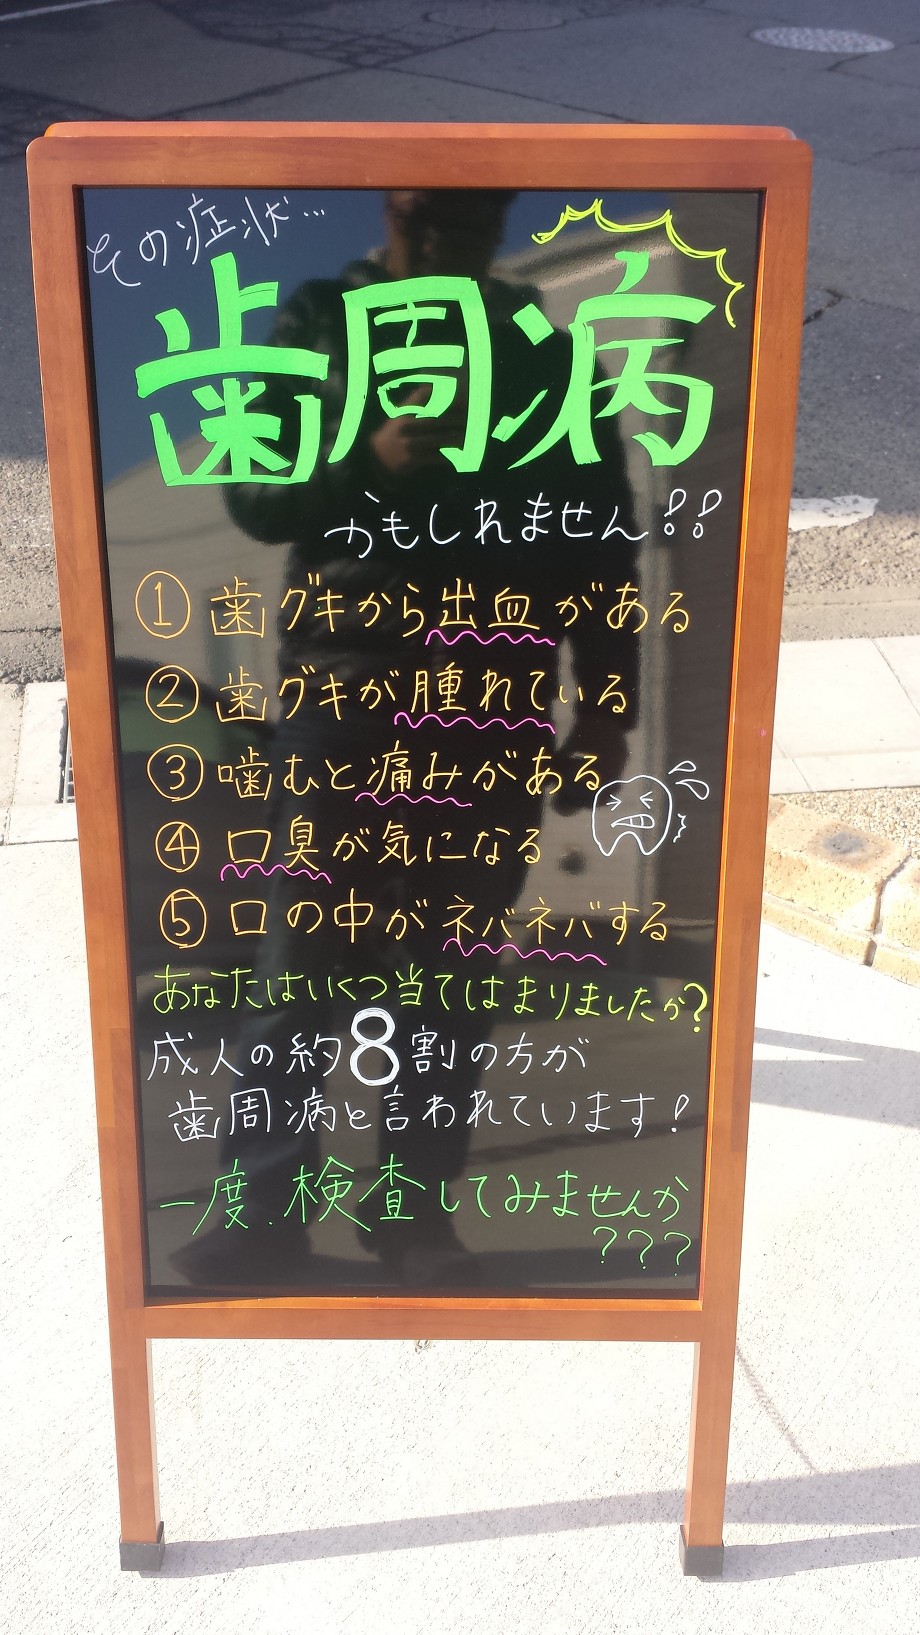 その症状…
歯周病
かもしれません!!
① 歯グキから出血がある
② 歯グキが腫れている
③ 噛むと痛みがある
④ 口臭が気になる
⑤ 口の中がネバネバする
あなたはいくつ当てはまりましたか?
成人の約8割の方が
歯周病と言われています!
一度、検査してみませんか
???